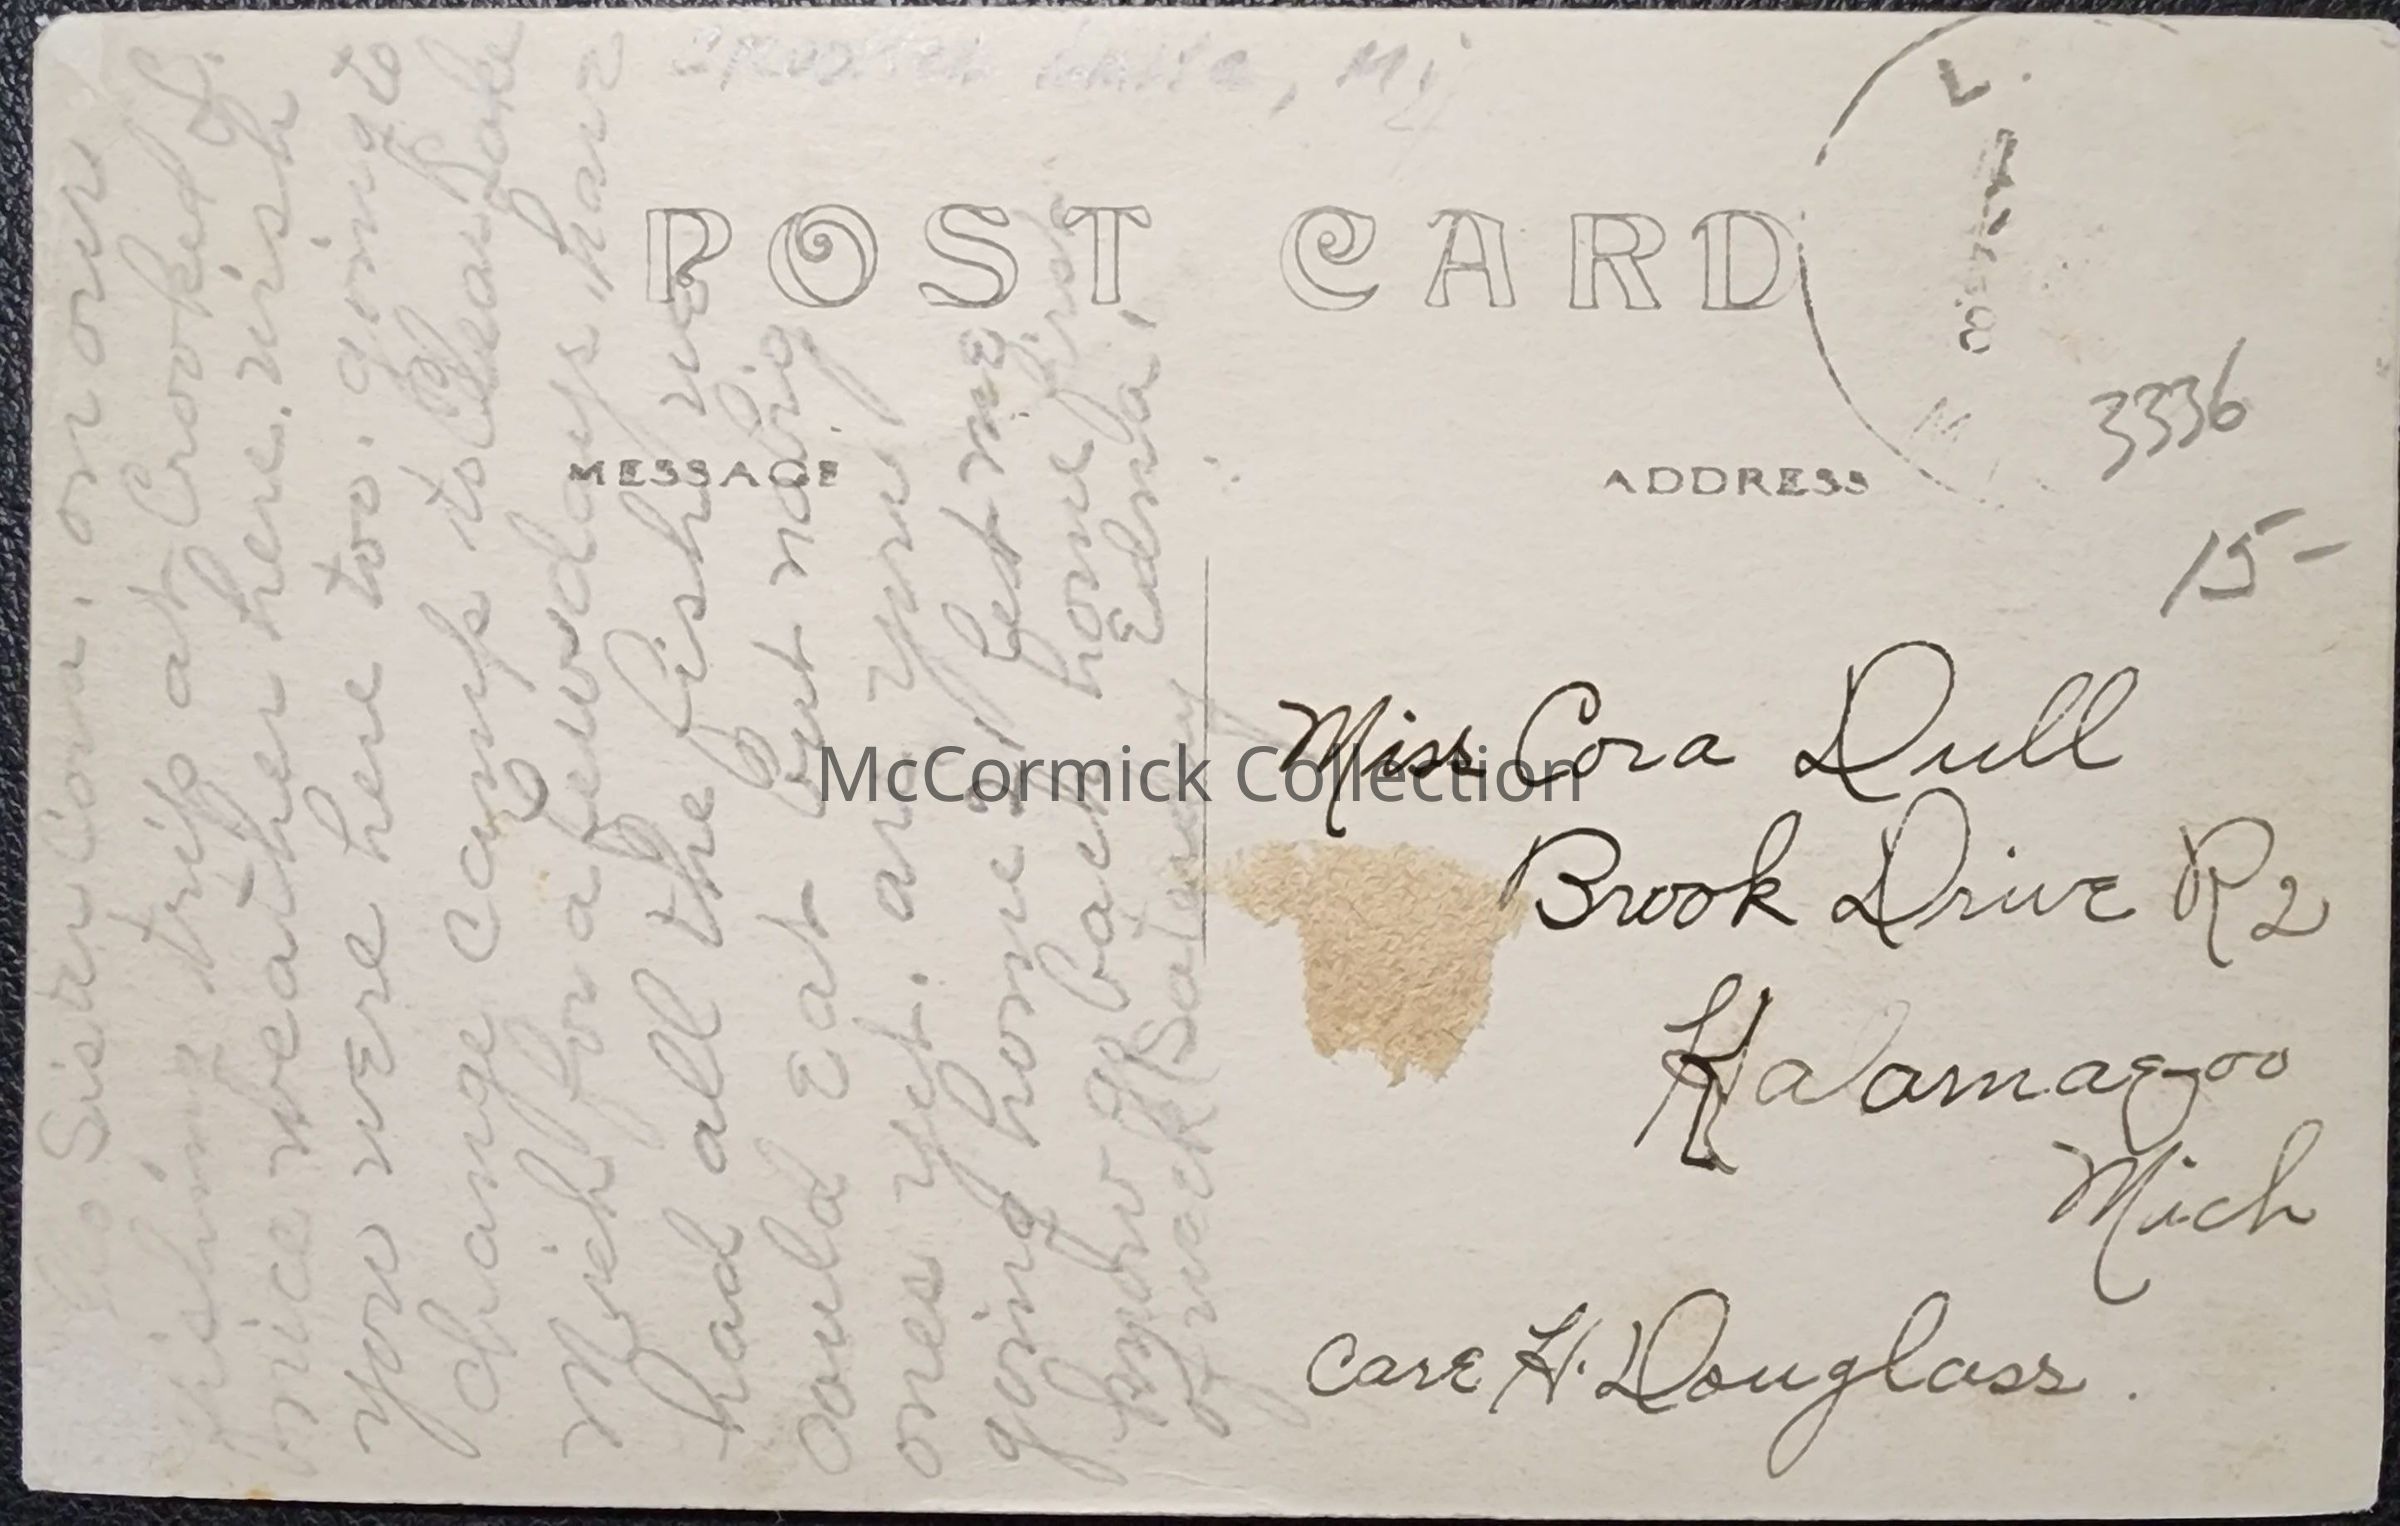 Crooked Lake, Mi
POST CARD
MESSAGE
ADDRESS
3336
15-
Sister Cora. on our
fishing trip at Crooked L.
nice weather here. wish
you were here too. going to
change camp to Clear Lake
Mich for a few days, have
had all the fish we
could eat but no big
ones yet. are you
going home? Let me
know go back home first
of week Saturday Edna.
Miss Cora Dull
Brook Drive R2
Kalamazoo
Mich
Care H. Douglass.
McCormick Collection